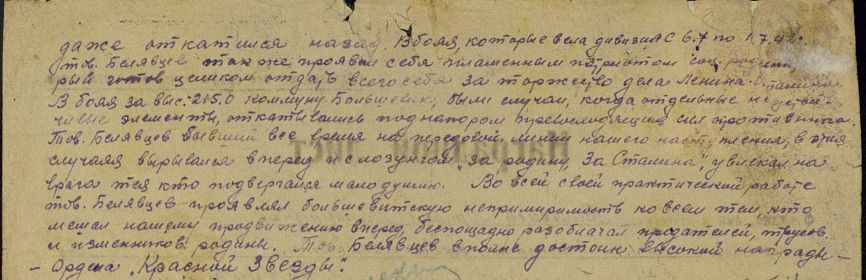 даже откатился назад. В боях, которые вела дивизия с 6.7 по 17.42 г.
тов. Белявцев также проявил себя пламенным патриотом соц. родины
рый готов целиком отдать всего себя за торжество дела Ленина-Сталина.
В боях за выс. 215.0 коммуну Большевик, были случаи, когда отдельные неустой-
чивые элементы, откатывались под напором превосходящих сил противника.
Тов. Белявцев бывший все время на передовой линии нашего наступления, в этих
случаях вырывался вперед и с лозунгом „за родину, за Сталина", увлекал на
врага тех кто подвергался малодушию. Во всей своей практической работе
тов. Белявцев проявлял большевистскую непримиримость ко всем тем, кто
мешал нашему продвижению вперед, беспощадно разоблачал предателей, трусов
и изменников родины. Тов. Белявцев вполне достоин высокой награды –
– Ордена „Красной Звезды".